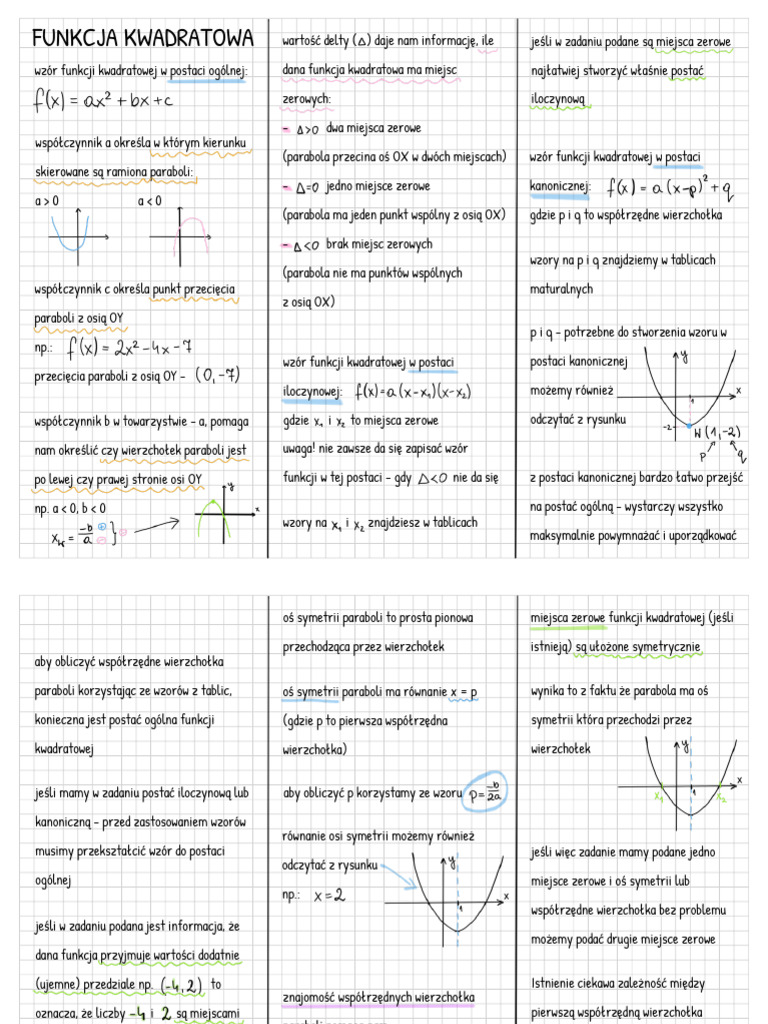 FUNKCJA KWADRATOWA
wzór funkcji kwadratowej w postaci ogólnej:
f(x) = ax² + bx + c
współczynnik a określa w którym kierunku
skierowane są ramiona paraboli:
a > 0 a < 0
współczynnik c określa punkt przecięcia
paraboli z osią OY
np.: f(x) = 2x² - 4x - 7
przecięcia paraboli z osią OY - (0, -7)
współczynnik b w towarzystwie - a, pomaga
nam określić czy wierzchołek paraboli jest
po lewej czy prawej stronie osi OY
y
np. a < 0, b < 0
x
-b +
a -
} -
wartość delty (Δ) daje nam informację, ile
dana funkcja kwadratowa ma miejsc
zerowych:
- Δ>0 dwa miejsca zerowe
(parabola przecina oś OX w dwóch miejscach)
- Δ=0 jedno miejsce zerowe
(parabola ma jeden punkt wspólny z osią OX)
- Δ<0 brak miejsc zerowych
(parabola nie ma punktów wspólnych
z osią OX)
wzór funkcji kwadratowej w postaci
iloczynowej: f(x)=a(x-x₁)(x-x₂)
gdzie x₁ i x₂ to miejsca zerowe
uwaga! nie zawsze da się zapisać wzór
funkcji w tej postaci - gdy Δ<0 nie da się
wzory na x₁ i x₂ znajdziesz w tablicach
jeśli w zadaniu podane są miejsca zerowe
najłatwiej stworzyć właśnie postać
iloczynową
wzór funkcji kwadratowej w postaci
kanonicznej: f(x) = a(x-p)² + q
gdzie p i q to współrzędne wierzchołka
wzory na p i q znajdziemy w tablicach
maturalnych
p i q - potrzebne do stworzenia wzoru w
postaci kanonicznej
możemy również
odczytać z rysunku
y
x
1
-2
W(1,-2)
p q
z postaci kanonicznej bardzo łatwo przejść
na postać ogólną - wystarczy wszystko
maksymalnie powymnażać i uporządkować
aby obliczyć współrzędne wierzchołka
paraboli korzystając ze wzorów z tablic,
konieczna jest postać ogólna funkcji
kwadratowej
jeśli mamy w zadaniu postać iloczynową lub
kanoniczną - przed zastosowaniem wzorów
musimy przekształcić wzór do postaci
ogólnej
jeśli w zadaniu podana jest informacja, że
dana funkcja przyjmuje wartości dodatnie
(ujemne) przedziale np. (-4,2) to
oznacza, że liczby -4 i 2 są miejscami
oś symetrii paraboli to prosta pionowa
przechodząca przez wierzchołek
oś symetrii paraboli ma równanie x = p
(gdzie p to pierwsza współrzędna
wierzchołka)
aby obliczyć p korzystamy ze wzoru p=-b/2a
równanie osi symetrii możemy również
odczytać z rysunku
np.: x=2
y
x
1
znajomość współrzędnych wierzchołka
miejsca zerowe funkcji kwadratowej (jeśli
istnieją) są ułożone symetrycznie
wynika to z faktu że parabola ma oś
symetrii która przechodzi przez
wierzchołek
y
x
x₁ 1 x₂
jeśli więc zadanie mamy podane jedno
miejsce zerowe i oś symetrii lub
współrzędne wierzchołka bez problemu
możemy podać drugie miejsce zerowe
Istnienie ciekawa zależność między
pierwszą współrzędną wierzchołka